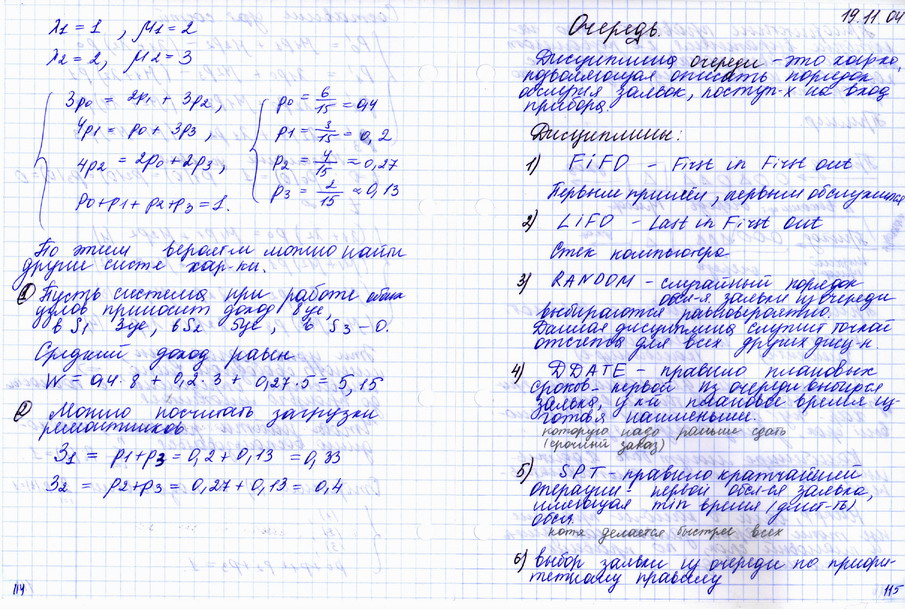 λ1 = 1 , μ1 = 2
λ2 = 2, μ2 = 3
3p0 = 2p1 + 3p2,
4p1 = p0 + 3p3,
4p2 = 2p0 + 2p3,
p0+p1+p2+p3 = 1.
p0 = 6/15 = 0,4
p1 = 3/15 = 0,2
p2 = 4/15 ≈ 0,27
p3 = 2/15 ≈ 0,13
По этим вероятн можно найти
другие систе хар-ки.
① Пусть система при работе обоих
узлов приносит доход 8уе,
в S1 3уе, в S2 5уе, в S3 – 0.
Средний доход равен
W = 0,4·8 + 0,2·3 + 0,27·5 = 5,15
② Можно посчитать загрузки
ремонтников
З1 = p1+p3 = 0,2 + 0,13 = 0,33
З2 = p2+p3 = 0,27 + 0,13 = 0,4
114
19.11.04
Очередь.
Дисциплина очереди – это хар-ка,
позволяющая описать порядок
обслуж заявок, поступ-х на вход
прибора
Дисциплины:
1) FiFO – First in First out
Первым пришёл, первым обслужился
2) LiFO – Last in First out
Стек компьютера
3) RANDOM – случайный порядок
обсл-я. заявки из очереди
выбираются равновероятно.
Данная дисциплина служит точкой
отсчёта для всех других дисц-н
4) DDATE – правило плановых
сроков – первой из очереди выбирося
заявка, у к-й плановое время из-
готовл наименьше.
которую надо раньше сдать
(срочный заказ)
5) SPT – правило кратчайшей
операции – первой обсл-ся заявка,
имеющая min время (длит-ть)
обсл.
котя делается быстрее всех
6) выбор заявки из очереди по приори-
тетному правилу
115